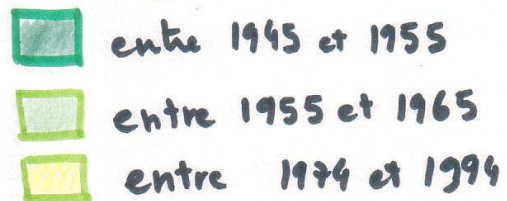 entre 1945 et 1955
entre 1955 et 1965
entre 1974 et 1994